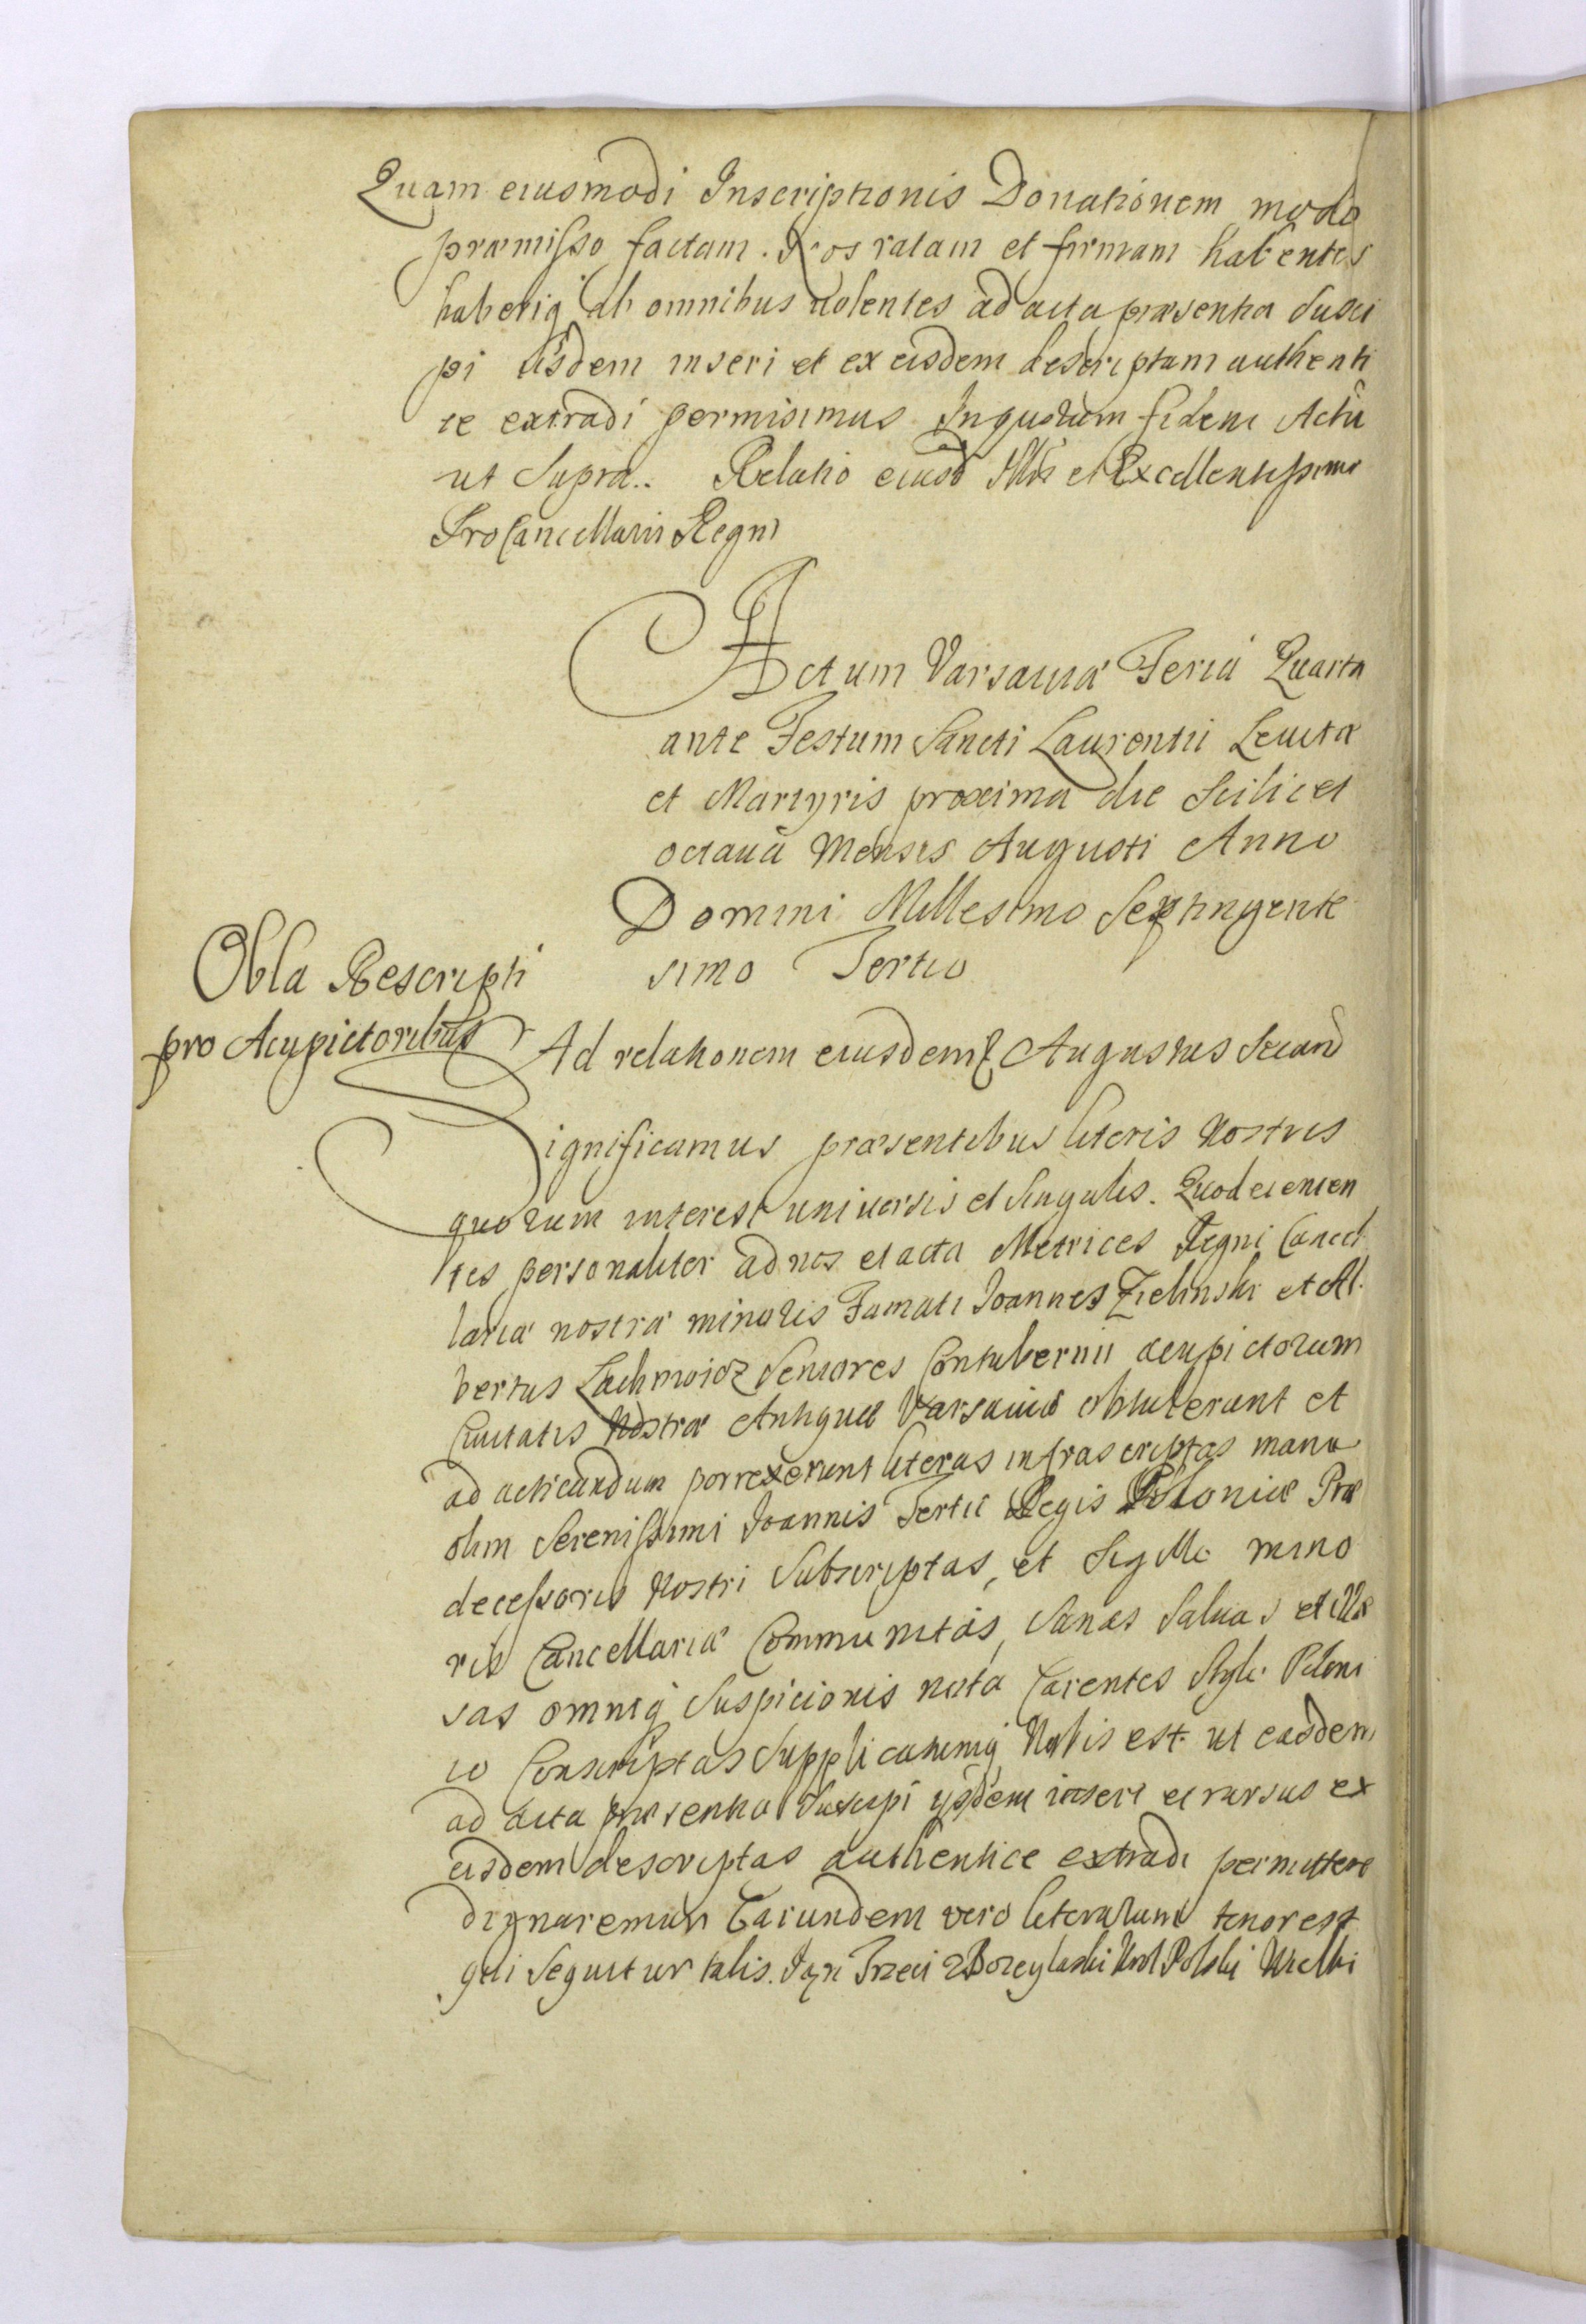 Quam eiusmodi Inscriptionis Donationem modo
præmisso factam. Nos ratam et firmam habentes
haberiq ab omnibus uolentes ad acta præsentia susci
pi iisdem inseri et ex eisdem descriptam authenti
ce extradi permisimus Inquorum fidem Actũ
ut Supra.. Relatio eiusd Illris et Excellentissimi
ProCancellarii Regni
Actum Varsauiæ Feriâ Quarta
ante Festum Sancti Laurentii Leuitæ
et Martyris proxima die Scilicet
octauâ Mensis Augusti Anno
Domini Millesimo Septingente
simo Tertio
Obla Rescripti
pro Acupictoribus
Ad relationem eiusdem Augustus Secund
Significamus præsentibus literis Nostris
quorum interest uniuersis et Singulis. Quod uenien
tes personaliter ad nos et acta Metrices Regni Cancel
lariæ nostræ minoris Famati Joannes Zielinski et Al
bertus Seniores Contubernii acupictorum
Ciuitatis Nostræ Antiquæ Varsauiæ obtulerunt et
ad acticandum porrexerunt literas infrascriptas manu
olim Serenissimi Joannis Tertii Regis Poloniæ Præ
decessoris Nostri Subscriptas, et Sigillo mino
ris Cancellariæ Communitas, Sanas Saluas et illæ
sas omniq Suspicionis notâ Carentes Stylo Poloni
co Conscriptas Supplicatumq Nobis est ut easdem
ad acta præsentia Suscipi ijsdem inseri et rursus ex
eisdem descriptas authentice extradi permittere
dignaremur Earundem vero literarum tenor est
qui Sequitur talis. Jan Trzeci ZBozey laski Krol Polski Wielki